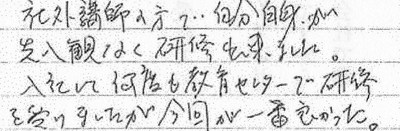 社外講師の方で、自分自身が
先入観なく研修出来ました。
入社して何度も教育センターで研修
を受けましたが今回が一番良かった。